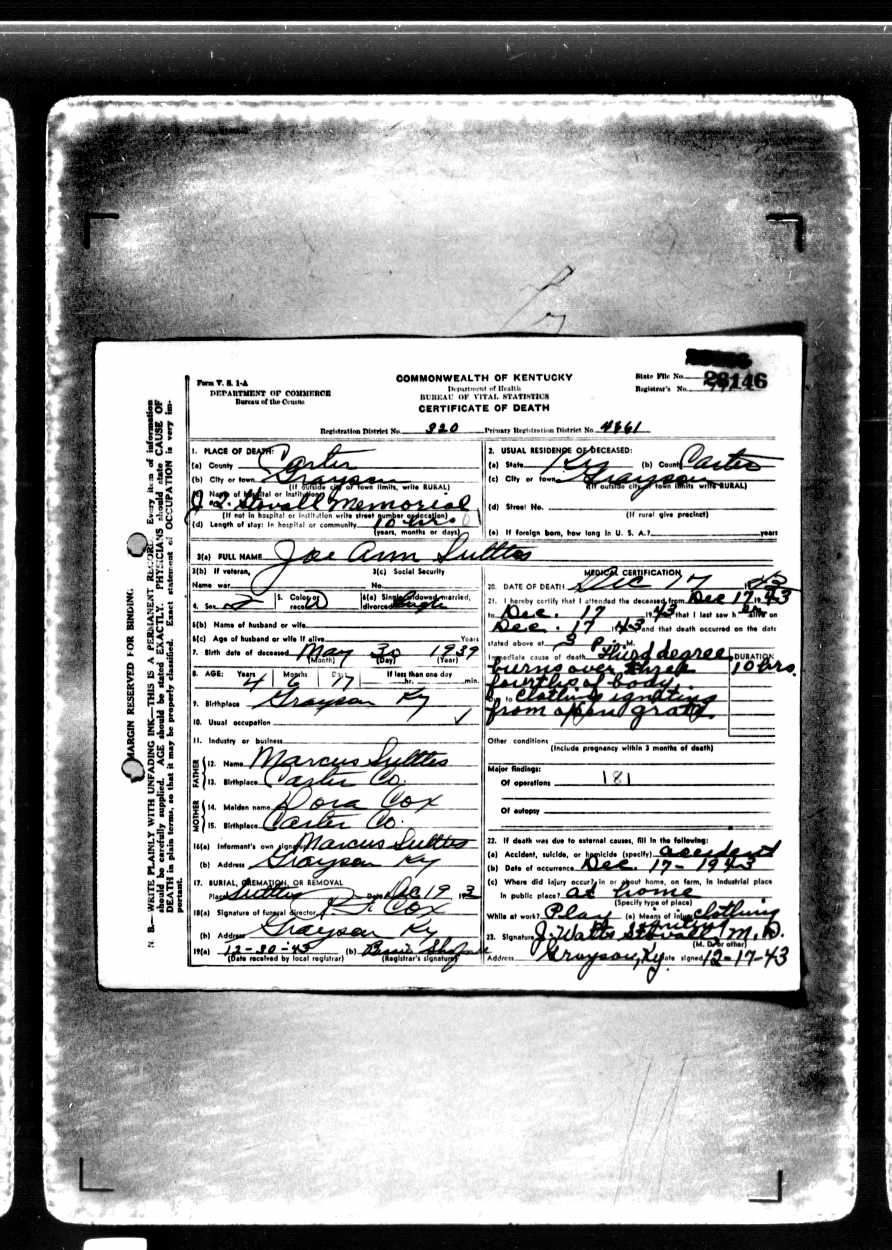 Form V. S. 1-A
DEPARTMENT OF COMMERCE
Bureau of the Census
COMMONWEALTH OF KENTUCKY
Department of Health
BUREAU OF VITAL STATISTICS
CERTIFICATE OF DEATH
State File No.
Registrar's No. 26146
Registration District No. 320 Primary Registration District No. 4661
MARGIN RESERVED FOR BINDING
N. B.—WRITE PLAINLY WITH UNFADING INK—THIS IS A PERMANENT RECORD. Every item of information
should be carefully supplied. AGE should be stated EXACTLY. PHYSICIANS should state CAUSE OF
DEATH in plain terms, so that it may be properly classified. Exact statement of OCCUPATION is very im-
portant.
1. PLACE OF DEATH:
(a) County Carter
(b) City or town Grayson
(If outside city or town limits, write RURAL)
(c) Name of hospital or institution
J. Q. Stovall Memorial
(If not in hospital or institution write street number or location)
(d) Length of stay: In hospital or community 10 hrs
(years, months or days)
2. USUAL RESIDENCE OF DECEASED:
(a) State Ky (b) County Carter
(c) City or town Grayson
(If outside city or town limits write RURAL)
(d) Street No.
(If rural give precinct)
(e) If foreign born, how long in U. S. A.? years
3(a) FULL NAME Joe Ann Suttles
3(b) If veteran, 3(c) Social Security
Name war No.
4. Sex F 5. Color or race W 6(a) Single, widowed, married, divorced Single
6(b) Name of husband or wife
6(c) Age of husband or wife if alive Years
7. Birth date of deceased May 30 1939
(Month) (Day) (Year)
8. AGE: Years 4 Months 6 Days 17 If less than one day hr. min.
9. Birthplace Grayson Ky
10. Usual occupation
11. Industry or business
FATHER
12. Name Marcus Suttles
13. Birthplace Carter Co.
MOTHER
14. Maiden name Dora Cox
15. Birthplace Carter Co.
16(a) Informant's own signature Marcus Suttles
(b) Address Grayson Ky
17. BURIAL, CREMATION, OR REMOVAL
Place Suttles Date Dec 19 3
18(a) Signature of funeral director J. F. Cox
(b) Address Grayson Ky
19(a) 12-30-43 (b) Bessie
(Date received by local registrar) (Registrar's signature)
MEDICAL CERTIFICATION
20. DATE OF DEATH Dec 17 1943
21. I hereby certify that I attended the deceased from Dec 17 1943
to Dec. 17 1943 that I last saw her alive on
Dec. 17 1943 and that death occurred on the date
stated above at 3 P. M.
Immediate cause of death Third degree DURATION
burns over three 10 hrs.
fourths of body.
Due to Clothing igniting
from open grate.
Other conditions
(Include pregnancy within 3 months of death)
Major findings:
Of operations 181
Of autopsy
22. If death was due to external causes, fill in the following:
(a) Accident, suicide, or homicide (specify) accident
(b) Date of occurrence Dec. 17- 1943
(c) Where did injury occur? in or about home, on farm, in industrial place
in public place? at home
(Specify type of place)
While at work? Play (e) Means of injury clothing
23. Signature J. Watts Stovall M. D.
(M. D. or other)
Address Grayson, Ky. Date signed 12-17-43